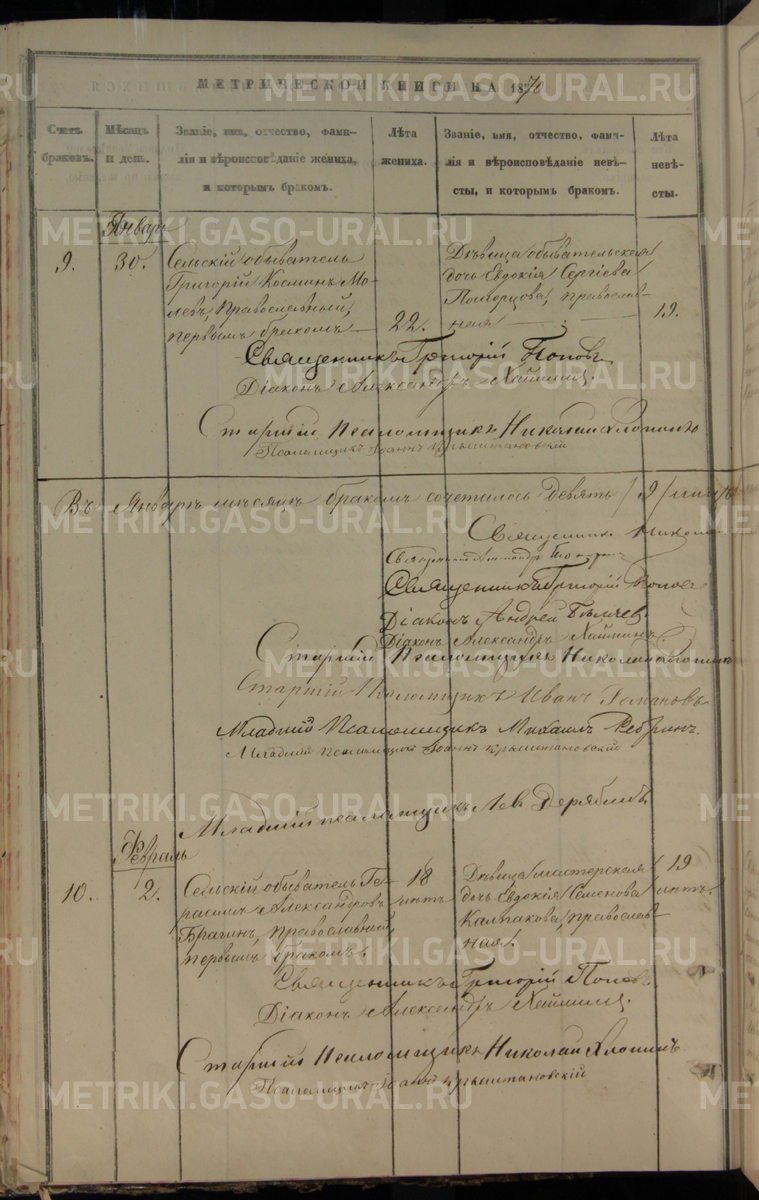 МЕТРИЧЕСКОЙ КНИГИ НА 1870
Счетъ браковъ.
Мѣсяцъ и день.
Званіе, имя, отчество, фами-
лія и вѣроисповѣданіе жениха,
и которымъ бракомъ.
Лѣта жениха.
Званіе, имя, отчество, фами-
лія и вѣроисповѣданіе невѣ-
сты, и которымъ бракомъ.
Лѣта невѣ-
сты.
Январь
9.
30.
Сельскій обыватель
Григорій Космин
левъ, Православный,
первымъ бракомъ
22.
Дѣвица обывательская
дочь Евдокія Сергіева
православ-
ная
19.
Священникъ Григорій Поповъ
Діаконъ Александръ
Старшій Псаломщикъ Николай Хлопинъ
Псаломщикъ Іоаннъ Крыштановскій
Въ Январѣ мѣсяцѣ бракомъ сочеталось Девять /9/
Священникъ
Священникъ Александръ
Священникъ Григорій Поповъ
Діаконъ Андрей
Діаконъ Александръ
Старшій Псаломщикъ Николай Хлопинъ
Старшій Псаломщикъ Иванъ
Младшій Псаломщикъ Михаилъ
Младшій псаломщикъ Іоаннъ Крыштановскій
Младшій псаломщикъ Левъ Дерябинъ
Февраль
10.
2.
Сельскій обыватель Ге-
расимъ Александровъ
Брагинъ, Православный,
первымъ бракомъ.
18
лѣтъ
Дѣвица мастерская
дочь Евдокія Семенова
Калпакова, православ-
ная.
19
лѣтъ.
Священникъ Григорій Поповъ
Діаконъ Александръ
Старшій Псаломщикъ Николай Хлопинъ
Псаломщикъ Іоаннъ Крыштановскій
METRIKI.GASO-URAL.RU